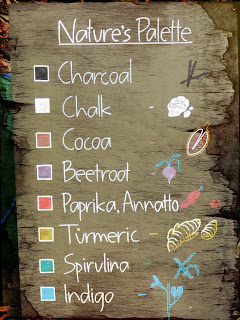 Nature's Palette
Charcoal
Chalk
Cocoa
Beetroot
Paprika, Annatto
Turmeric
Spirulina
Indigo